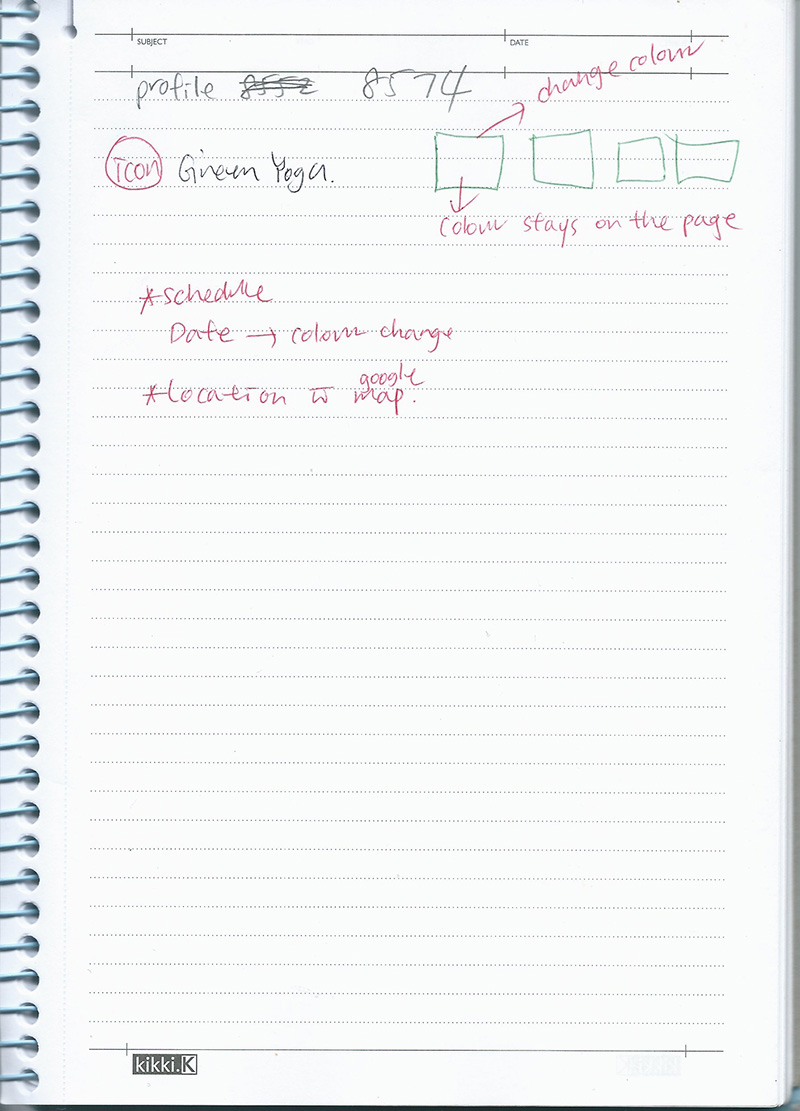 SUBJECT DATE
profile 8552 8574
change colour
icon Green Yoga.
colour stays on the page
*schedule
Date → colour change
*Location to google map.
kikki.K